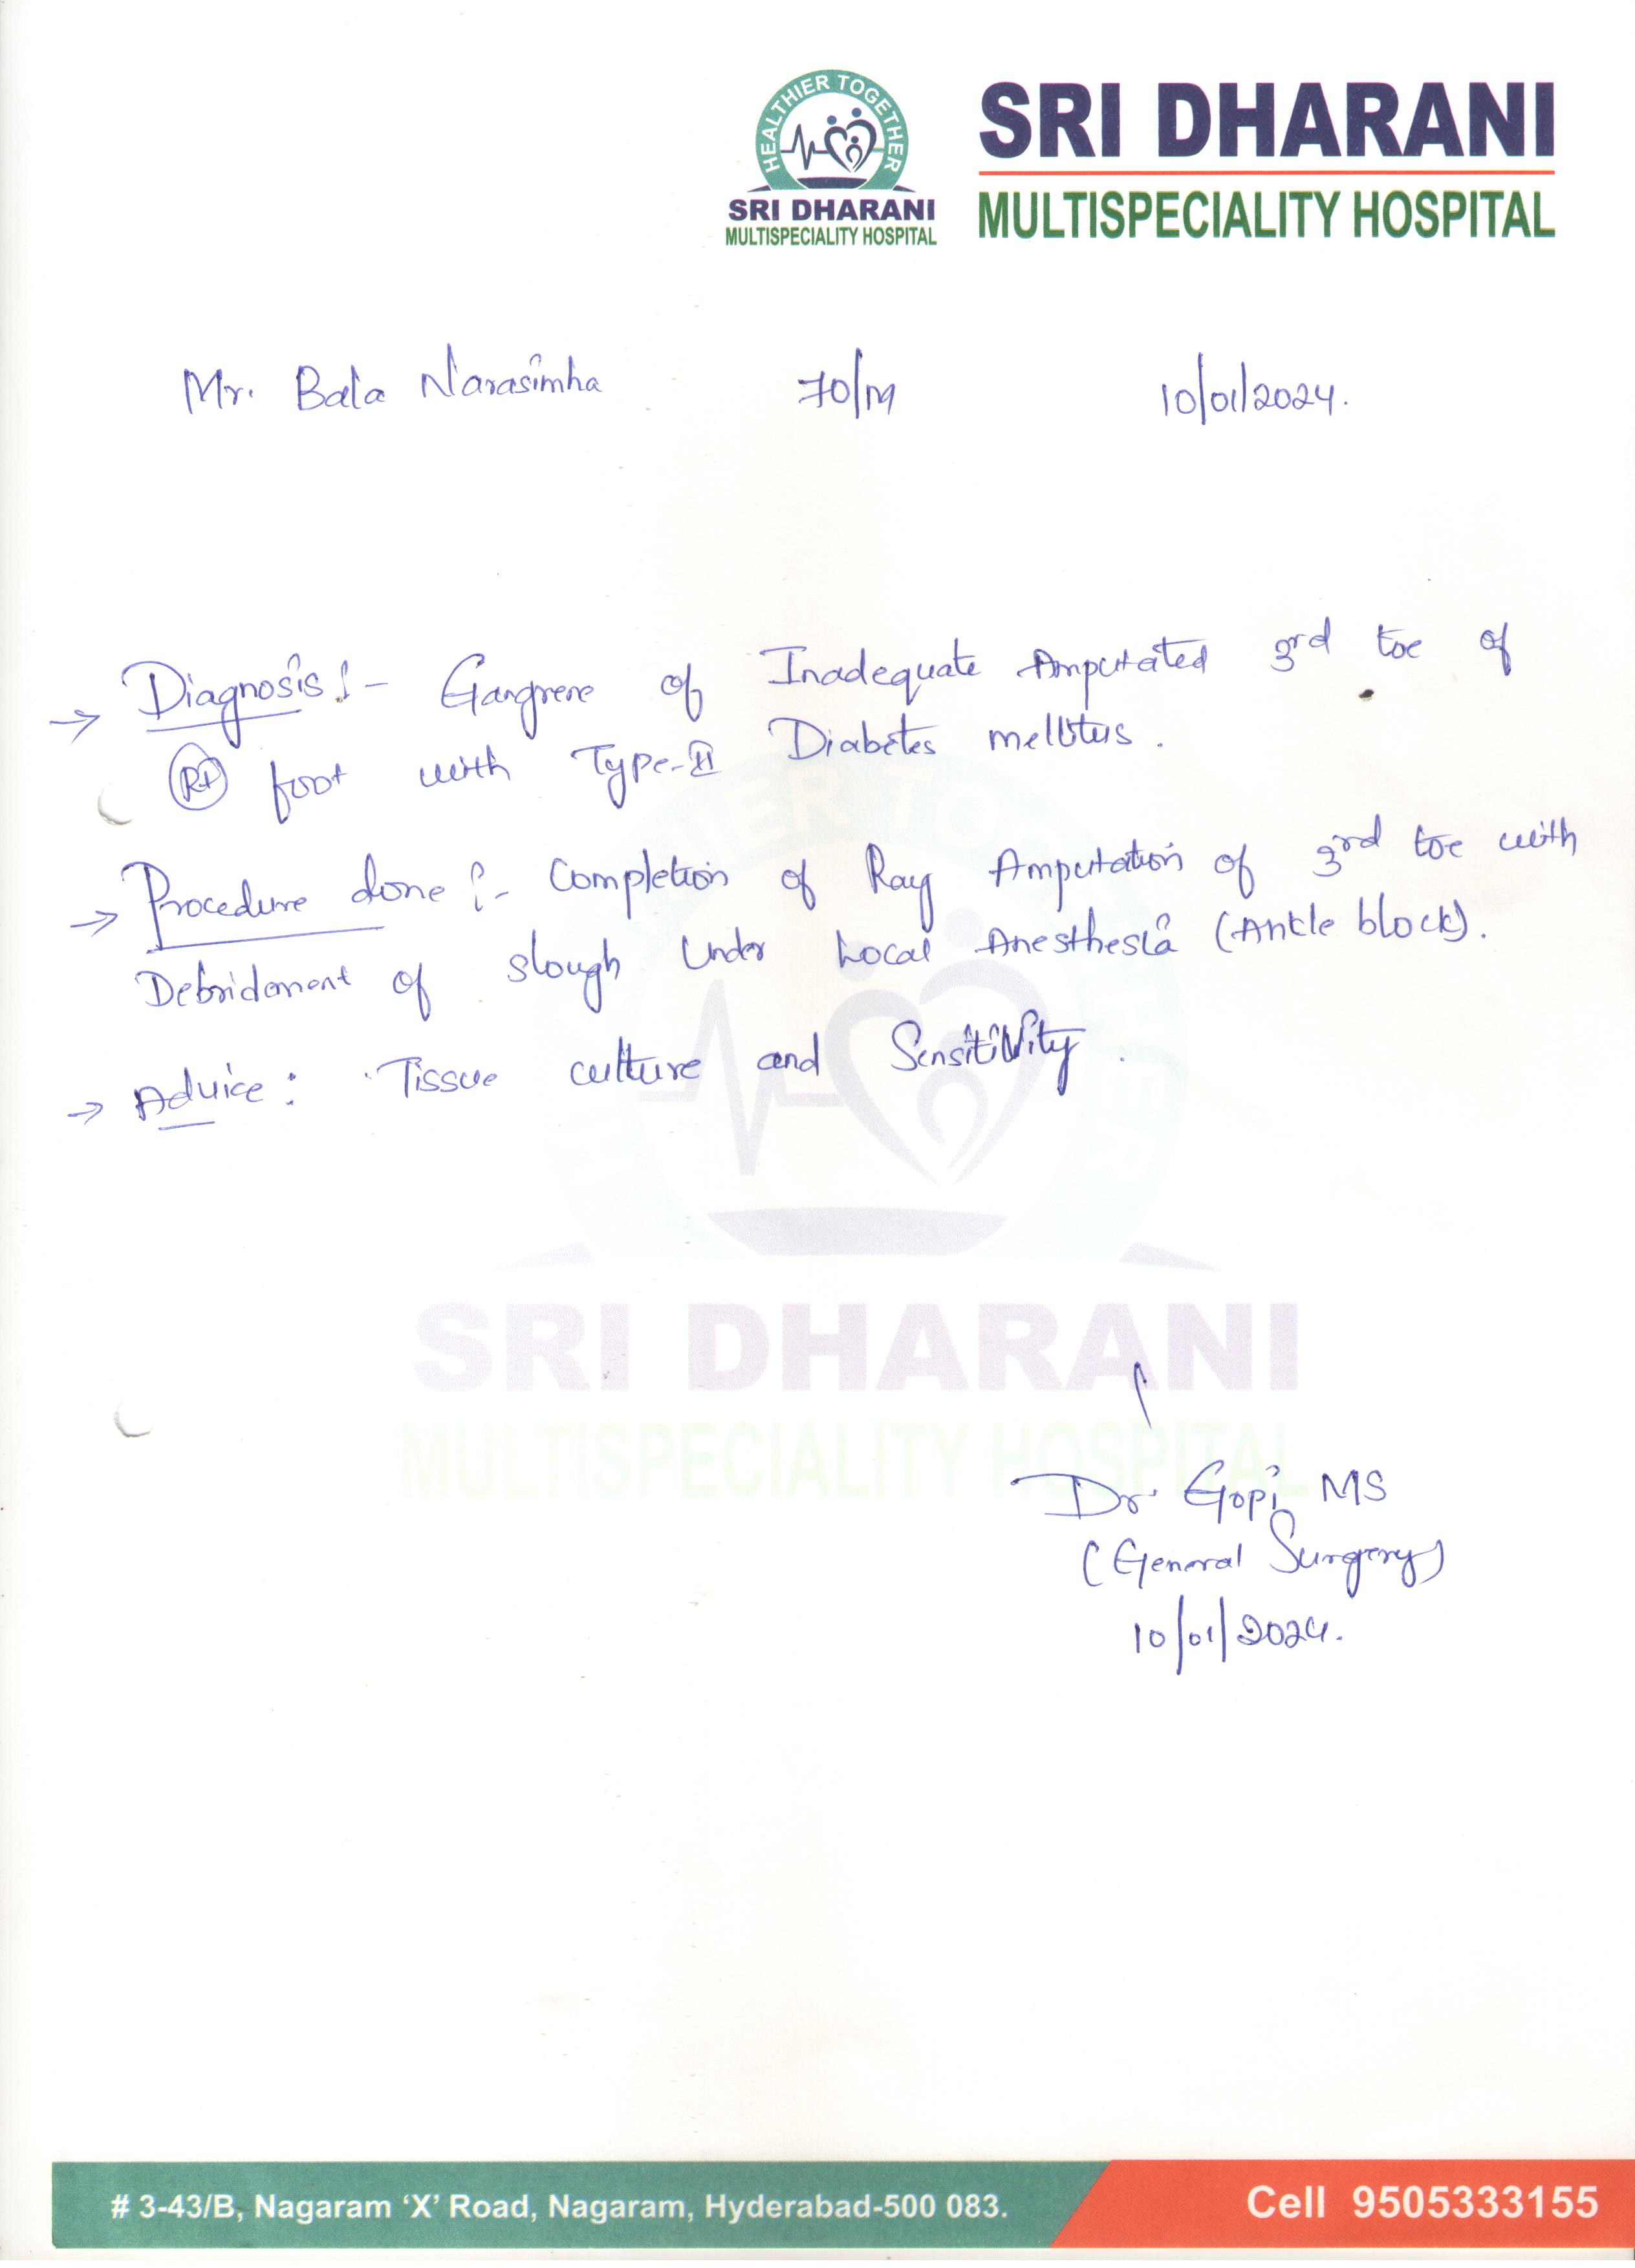 HEALTHIER TOGETHER
SRI DHARANI
MULTISPECIALITY HOSPITAL
SRI DHARANI
MULTISPECIALITY HOSPITAL
Mr. Bala Narasimha 70/M 10/01/2024.
→ Diagnosis:- Gangrene of Inadequate Amputated 3rd toe of
Rt foot with Type-II Diabetes mellitus.
→ Procedure done:- Completion of Ray Amputation of 3rd toe with
Debridement of slough Under Local Anesthesia (Ankle block).
→ Advice: Tissue culture and Sensitivity.
SRI DHARANI
MULTISPECIALITY HOSPITAL
Dr Gopi MS
(General Surgery)
10/01/2024.
# 3-43/B, Nagaram 'X' Road, Nagaram, Hyderabad-500 083.
Cell 9505333155